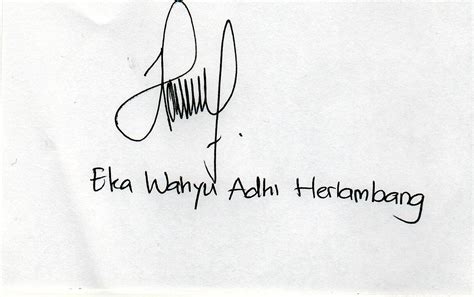 Eka Wahyu Adhi Herlambang